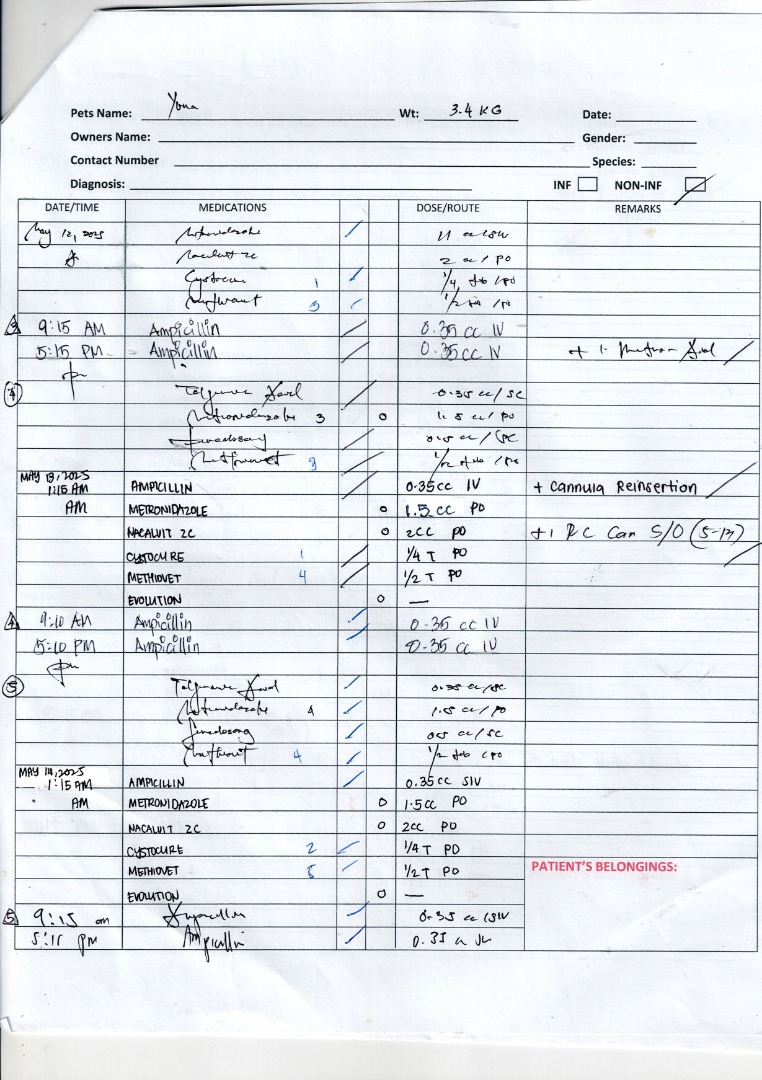 Pets Name: Yona Wt: 3.4 KG Date:
Owners Name: Gender:
Contact Number Species:
Diagnosis: INF NON-INF
DATE/TIME MEDICATIONS DOSE/ROUTE REMARKS
May 12, 2025
2 cc / PO
1 1/4 tab / PO
3 1/2 tab / PO
3 9:15 AM Ampicillin 0.35 cc IV
5:15 PM Ampicillin 0.35 cc IV + 1
pm
4 0.35 cc / SC
3 1.5 cc / PO
3 1/2 tab / PO
MAY 13, 2025
1:15 AM AMPICILLIN 0.35cc IV + Cannula Reinsertion
AM METRONIDAZOLE 1.5 cc PO
NACALVIT 2C 2CC PO +1 RC Can S/O (5-13)
CYSTOCURE 1 1/4 T PO
METHIOVET 4 1/2 T PO
EVOLUTION —
4 9:10 AM Ampicillin 0.35 cc IV
5:10 PM Ampicillin 0.35 cc IV
pm
5 0.35 cc / SC
4 1.5 cc / PO
0.5 cc / SC
4 1/2 tab / PO
MAY 14, 2025
1:15 AM AMPICILLIN 0.35cc SIV
AM METRONIDAZOLE 1.5cc PO
NACALVIT 2C 2CC PO
CYSTOCURE 2 1/4 T PO
METHIOVET 5 1/2 T PO
PATIENT'S BELONGINGS:
EVOLUTION —
5 9:15 am Ampicillin 0.35 cc / SIV
5:15 pm Ampicillin 0.35